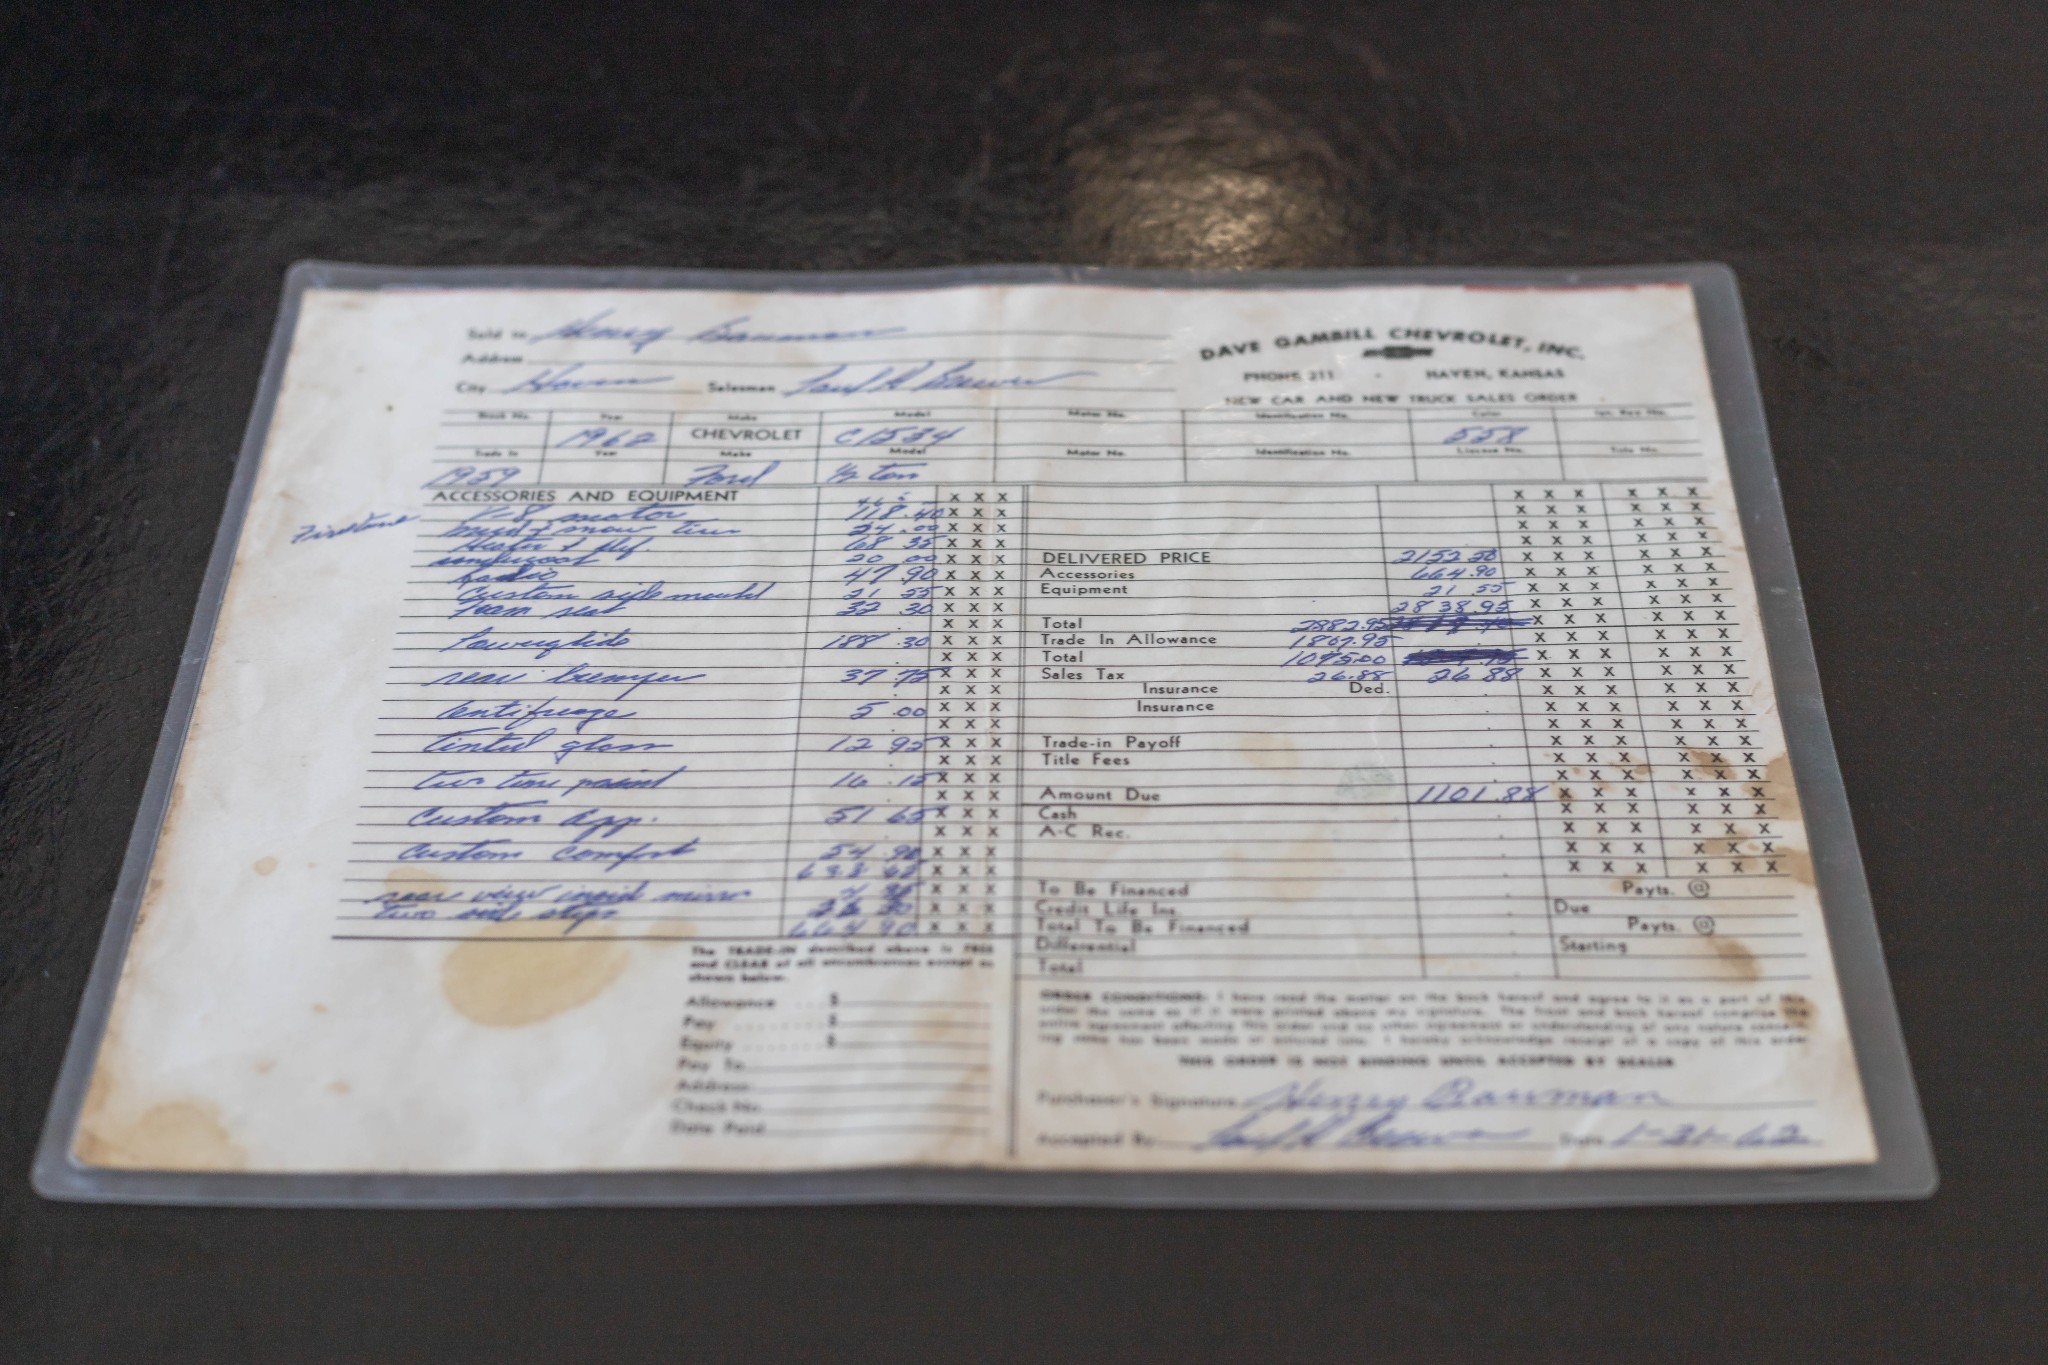 Sold to Henry Bauman
Address
City Haven Salesman Paul R
DAVE GAMBILL CHEVROLET, INC.
PHONE 211 - HAVEN, KANSAS
NEW CAR AND NEW TRUCK SALES ORDER
Stock No. Year Make Model Motor No. Identification No. Color Ign. Key No.
1962 CHEVROLET C1534 558
Trade In Year Make Model Motor No. Identification No. License No. Title No.
1959 Ford 1/2 ton
ACCESSORIES AND EQUIPMENT X X X
Firestone
V-8 motor 118.40 X X X
mud & snow tires 24.00 X X X
Heater & def. 68 35 X X X
20 00 X X X
Radio 47.90 X X X
Custom side mould 21 55 X X X
Foam seat 32 30 X X X
X X X
Powerglide 188.30 X X X
X X X
rear bumper 37 75 X X X
X X X
Centifuage 5.00 X X X
X X X
tinted glass 12 95 X X X
X X X
two tone paint 16.15 X X X
X X X
Custom app. 51 65 X X X
X X X
Custom comfort 54.90 X X X
X X X
rear view insid mirror X X X
two side steps X X X
664 90 X X X
DELIVERED PRICE 2152.50 X X X X X X
Accessories 664.90 X X X X X X
Equipment 21.55 X X X X X X
2838.95 X X X X X X
Total 2882.95 X X X X X X
Trade In Allowance 1867.95 X X X X X X
Total 1075.00 X X X X X X
Sales Tax 26.88 26 88 X X X X X X
Insurance Ded. X X X X X X
Insurance X X X X X X
X X X X X X
Trade-in Payoff X X X X X X
Title Fees X X X X X X
X X X X X X
Amount Due 1101.88 X X X X X X
Cash X X X X X X
A-C Rec. X X X X X X
X X X X X X
X X X X X X
To Be Financed Payts. @
Credit Life Ins. Due
Total To Be Financed Payts. @
Differential Starting
Total
The TRADE-IN described above is FREE
and CLEAR of all encumbrances except as
shown below.
Allowance $
Pay $
Equity $
Pay To
Address
Check No.
Date Paid
ORDER CONDITIONS: I have read the matter on the back hereof and agree to it as a part of this
order the same as if it were printed above my signature. The front and back hereof comprise the
entire agreement affecting this order and no other agreement or understanding of any nature concern-
ing same has been made or entered into. I hereby acknowledge receipt of a copy of this order
THIS ORDER IS NOT BINDING UNTIL ACCEPTED BY DEALER
Purchaser's Signature Henry Bauman
Accepted By Paul R Date 1-31-62